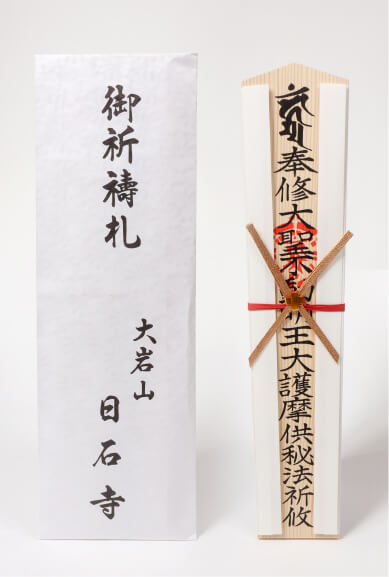 御祈禱札
大岩山
日石寺
奉修大聖王大護摩供秘法祈攸